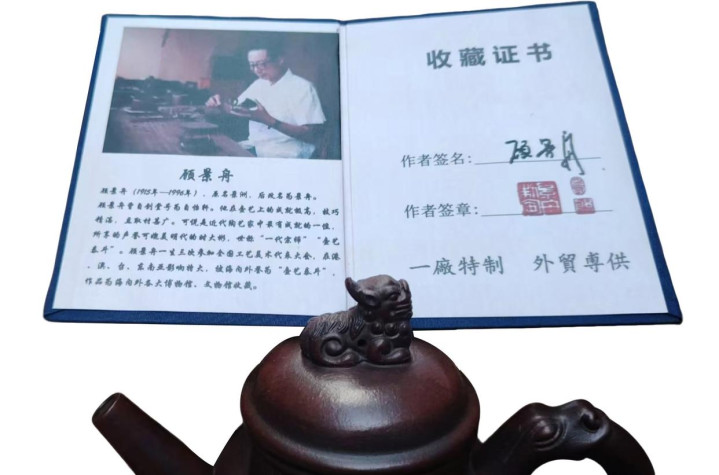 顾景舟
顾景舟(1915年—1996年)、原名景洲,后改名为景舟。
顾景舟曾自制堂号为自怡轩。他在壶艺上的成就极高,技巧
精湛,且取材甚广。可说是近代陶艺家中最有成就的一位,
所享的声誉可媲美明代的时大彬,世称“一代宗师”“壶艺
泰斗”。顾景舟一生三次参加全国工艺美术代表大会,在港、
澳、台、东南亚影响特大,被海内外誉为“壶艺泰斗”,
作品为海内外各大博物馆、文物馆收藏。
收藏证书
作者签名: 顾景舟
作者签章:
一廠特制 外貿専供